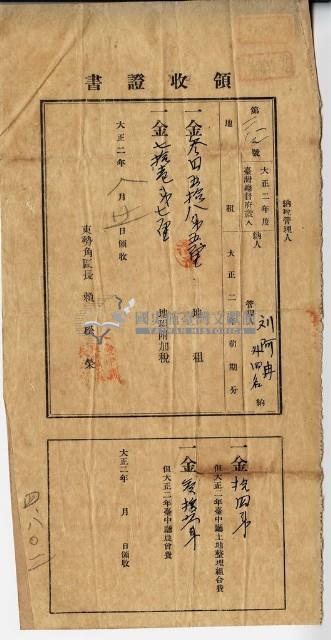 領收證書
納稅管理人
第 號
大正二年度
臺灣總督府歲入
納人
管理人
刘阿冉
外四名
納
地租
大正二 前期分
一金叁円五拾八錢五厘 地租
一金七拾壱錢七厘 地租附加稅
大正二年八月 日領收
東勢角區長 賴 榮
國史館臺灣文獻館
TAIWAN HISTORICA
一金拾四錢
但大正二年臺中廳土地整理組合費
一金
但大正二年臺中廳農會費
大正二年 月 日領收